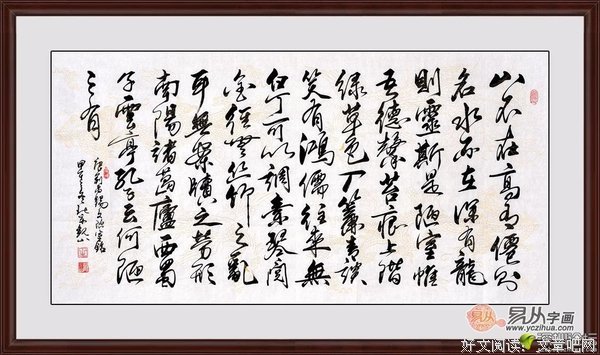 山不在高有僊則
名水不在深有龍
則靈斯是陋室惟
吾德馨苔痕上階
绿草色入簾青談
笑有鴻儒往来無
白丁可以調素琴閲
金經無丝竹之亂
耳無案牘之勞形
南陽諸葛廬西蜀
子雲亭孔子云何陋
之有
唐刘禹锡文陋室铭
易从
易从字画
www.yczihua.com
好文阅读：文章吧网